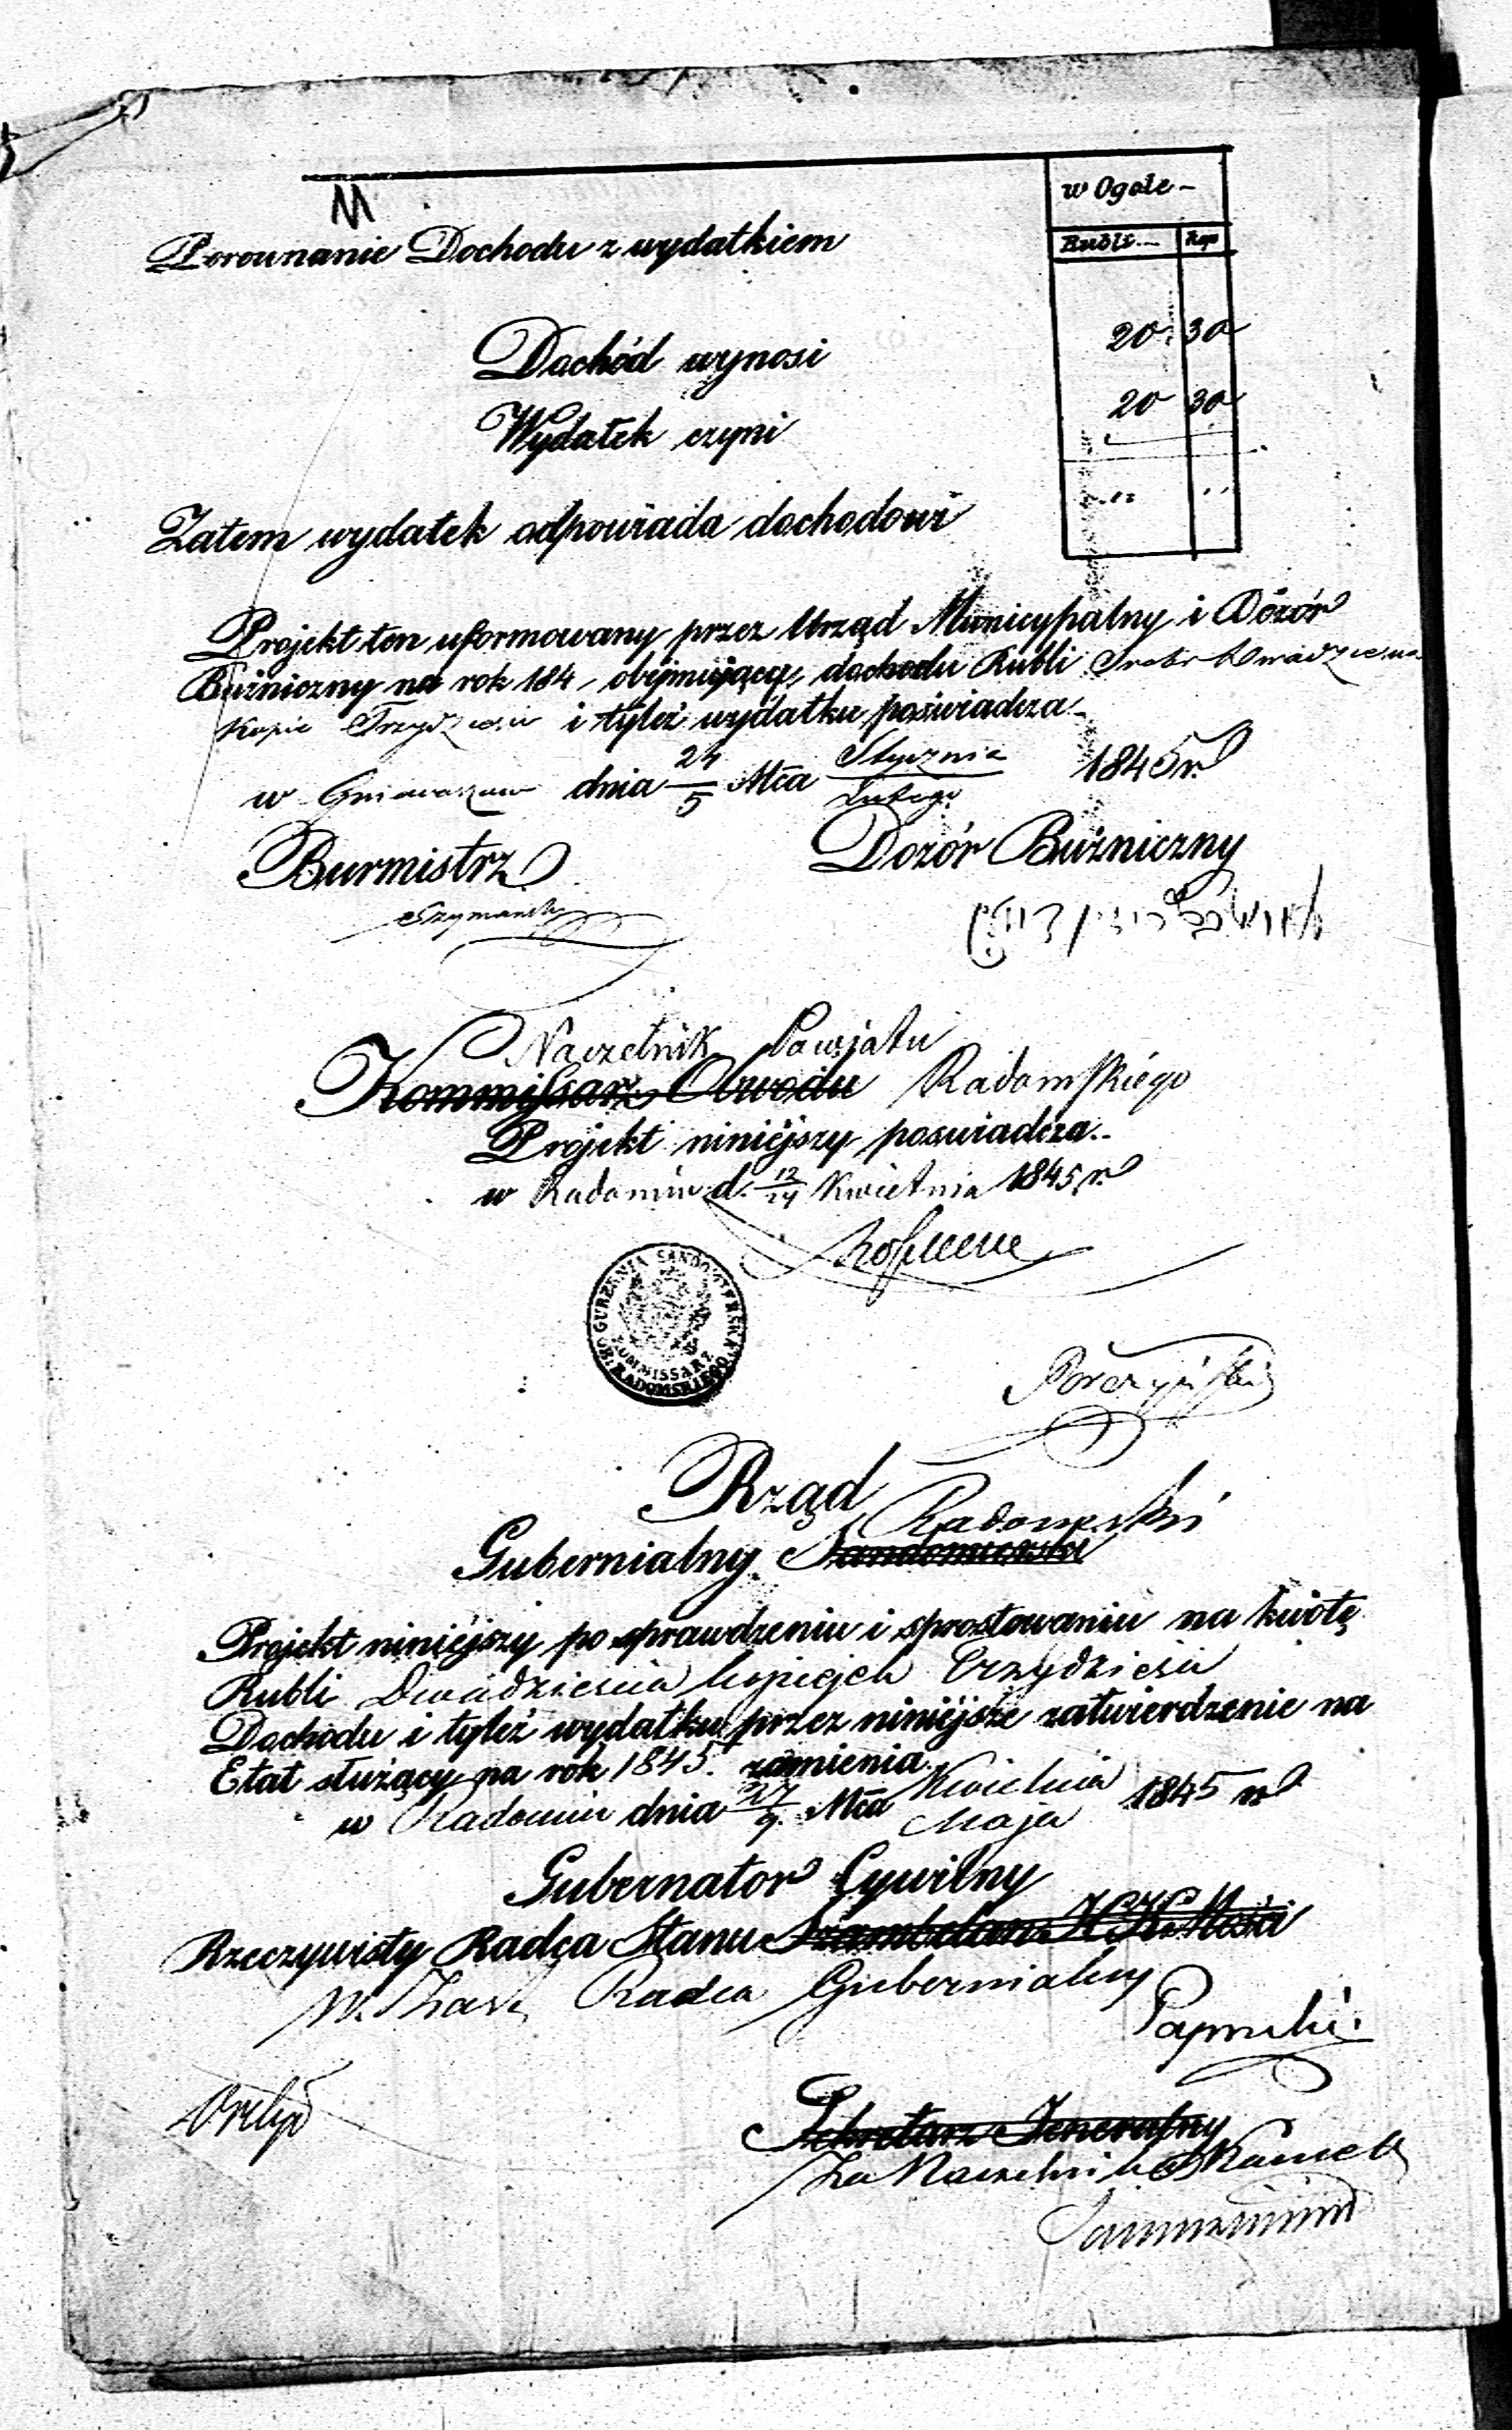 w Ogole -
Rubli - Kop
Porownanie Dochodu z wydatkiem
Dochód wynosi 20 30
Wydatek czyni 20 30
Zatem wydatek odpowiada dochodowi " "
Projekt ten uformowany przez Urząd Municypalny i Dozór
Bużniczny na rok 184 , obejmujący dochodu Rubli Srebr Dwadziescia
Kopie Trzydzieści i tyleż wydatku poświadcza
w Gniewoszow dnia 24/5 Mca Stycznia/Lutego 1845 r.
Burmistrz Dozór Bużniczny
Szymański
Naczelnik Powiatu
Kommissarz Obwodu Radomskiego
Projekt niniejszy poswiadcza.
w Radomiu d. 12/24 Kwietnia 1845 r.
GUBERNIA SANDOMIERSKA
KOMMISSARZ
OB: RADOMSKIEGO
Rząd
Radomski
Gubernialny Sandomierski
Projekt niniejszy po sprawdzeniu i sprostowaniu na kwotę
Rubli Dwadzieścia kopiejek Trzydzieści
Dochodu i tyleż wydatku przez niniejsze zatwierdzenie na
Etat służący na rok 1845. zamienia.
w Radomiu dnia 27/9 Mca Kwietnia/Maja 1845 r.
Gubernator Cywilny
Rzeczywisty Radca Stanu Szambelan J C K Mości
W. Zast. Radca Gubernialny
Sekretarz Jeneralny
Za Naczelnika Kancel